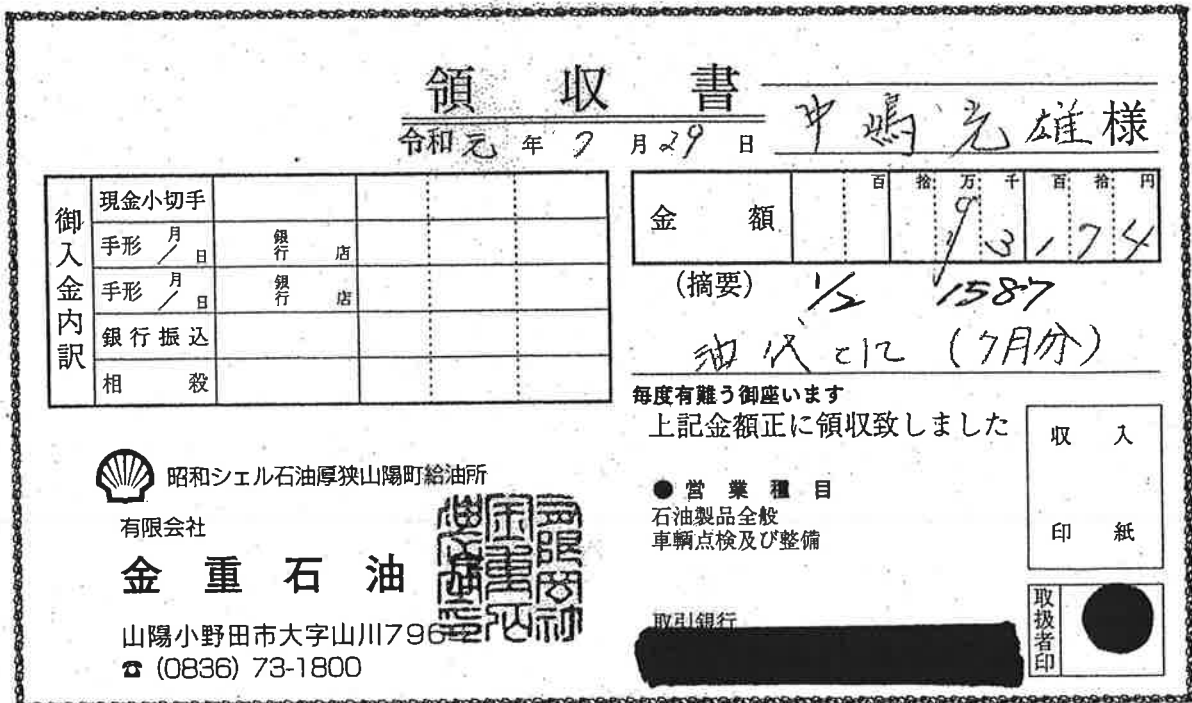 領収書
令和元年7月29日
中嶋光雄様
御入金内訳
現金小切手
手形 月/日 銀行 店
手形 月/日 銀行 店
銀行振込
相殺
金額
百 拾 万 千 百 拾 円
3,174
(摘要) 1/2 1587
油代として (7月分)
毎度有難う御座います
上記金額正に領収致しました
収入
印紙
昭和シェル石油厚狭山陽町給油所
有限会社
金重石油
山陽小野田市大字山川796
☎ (0836) 73-1800
●営業種目
石油製品全般
車輌点検及び整備
取引銀行
取扱者印